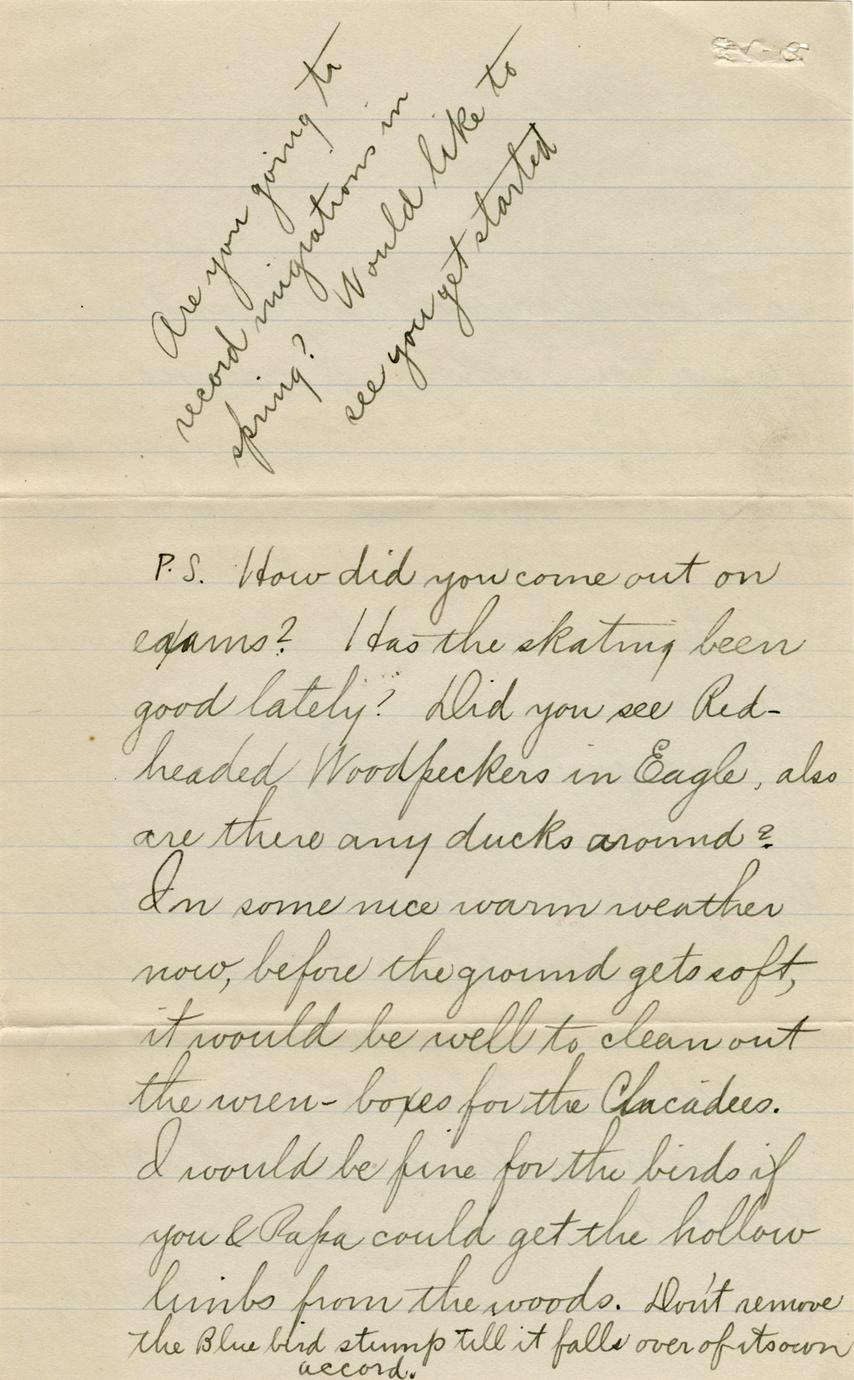 Are you going to
record migrations in
spring? Would like to
see you get started
P.S. How did you come out on
exams? Has the skating been
good lately? Did you see Red-
headed Woodpeckers in Eagle, also
are there any ducks around?
In some nice warm weather
now, before the ground gets soft,
it would be well to clean out
the wren-boxes for the Chicadees.
I would be fine for the birds if
you & Papa could get the hollow
limbs from the woods. Don't remove
the Blue bird stump till it falls over of its own
accord.